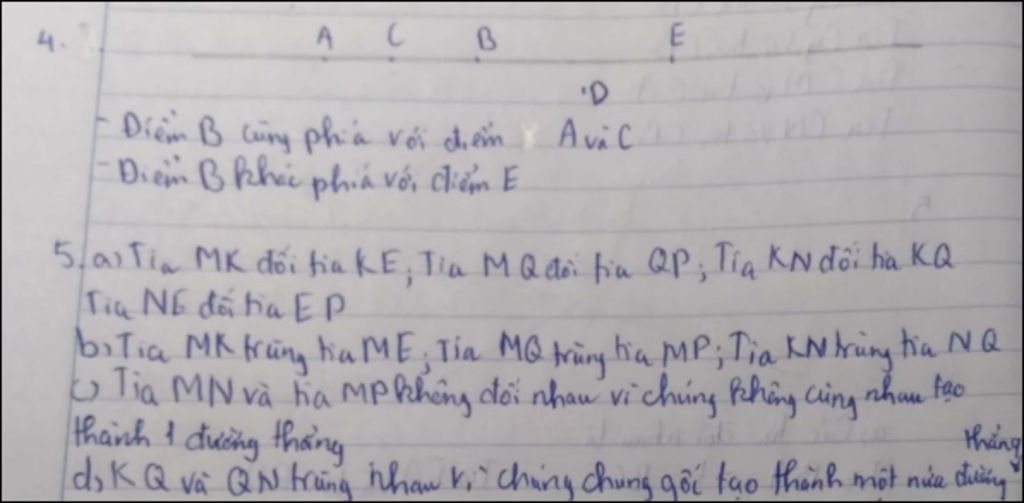 4.
A C B E
D
- Điểm B cùng phía với điểm A và C
- Điểm B khác phía với điểm E
5. a) Tia MK đối tia KE; Tia MQ đối tia QP; Tia KN đối tia KQ
Tia NE đối tia EP
b) Tia MK trùng tia ME; Tia MQ trùng tia MP; Tia KN trùng tia NQ
c) Tia MN và tia MP không đối nhau vì chúng không cùng nhau tạo
thành 1 đường thẳng
d) KQ và QN trùng nhau vì chúng chung gốc tạo thành một nửa đường thẳng